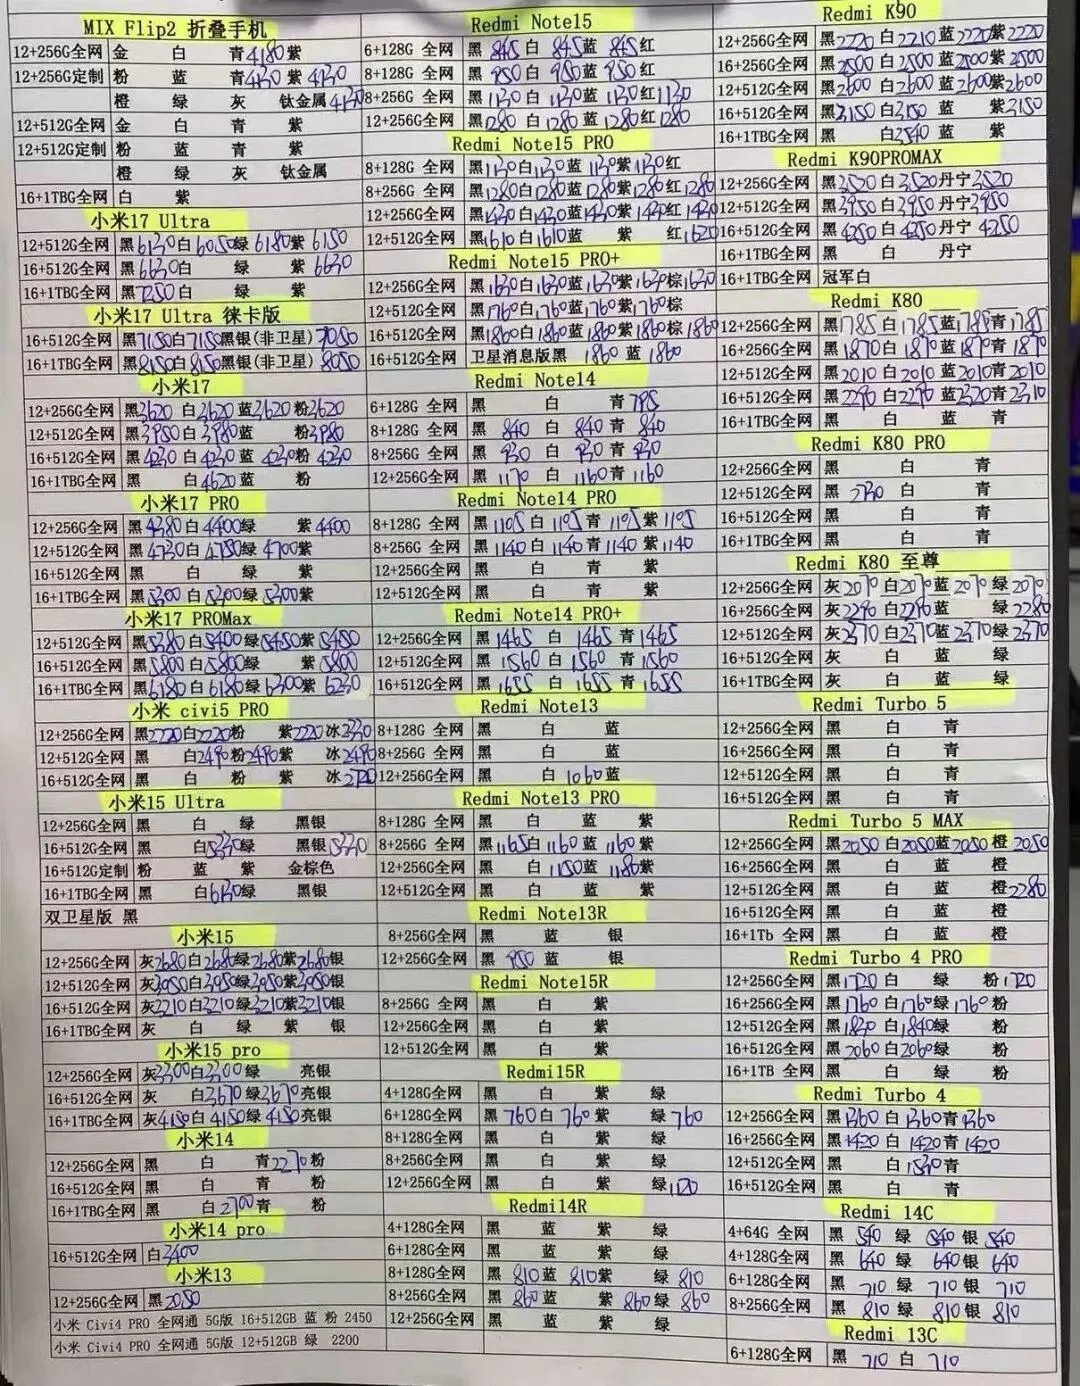 MIX Flip2 折叠手机
12+256G全网 金 白 青4180紫
12+256G定制 粉 蓝 青4130紫 4130
橙 绿 灰 钛金属4130
12+512G全网 金 白 青 紫
12+512G定制 粉 蓝 青 紫
橙 绿 灰 钛金属
16+1TBG全网 白 紫
小米17 Ultra
12+512G全网 黑6130白6050绿6180紫6150
16+512G全网 黑6630白 绿 紫6630
16+1TBG全网 黑7250白 绿 紫
小米17 Ultra 徕卡版
16+512G全网 黑7150白7150黑银(非卫星)7050
16+1TBG全网 黑8150白8150黑银(非卫星)8050
小米17
12+256G全网 黑3620白3620蓝3620粉3620
12+512G全网 黑3950白3980蓝 粉3980
16+512G全网 黑4230白4230蓝4230粉4230
16+1TBG全网 黑 白4620蓝 粉
小米17 PRO
12+256G全网 黑4380白4400绿 紫4400
12+512G全网 黑4730白4750绿4700紫
16+512G全网 黑 白 绿 紫
16+1TBG全网 黑5300白5300绿5300紫
小米17 PROMax
12+512G全网 黑5380白5400绿5450紫5450
16+512G全网 黑5800白5800绿 紫5800
16+1TBG全网 黑6180白6180绿6300紫6230
小米 civi5 PRO
12+256G全网 黑2220白2220粉 紫2220冰2230
12+512G全网 黑 白2490粉2490紫 冰2490
16+512G全网 黑 白 粉 紫 冰2720
小米15 Ultra
12+256G全网 黑 白 绿 黑银
16+512G全网 黑 白5330绿 黑银5330
16+512G定制 粉 蓝 紫 金棕色
16+1TBG全网 黑 白6130绿 黑银
双卫星版 黑
小米15
12+256G全网 灰2680白2680绿2680紫2680银
12+512G全网 灰3950白3950绿3950紫3950银
16+512G全网 灰3210白3210绿3210紫3210银
16+1TBG全网 灰 白 绿 紫 银
小米15 pro
12+256G全网 灰3300白3300绿 亮银
16+512G全网 灰 白3670绿3670亮银
16+1TBG全网 灰4150白4150绿4150亮银
小米14
12+256G全网 黑 白 青2270粉
16+512G全网 黑 白 青 粉
16+1TBG全网 黑 白2700青 粉
小米14 pro
16+512G全网 白3400
小米13
12+256G全网 黑2050
小米 Civi4 PRO 全网通 5G版 16+512GB 蓝 粉 2450
小米 Civi4 PRO 全网通 5G版 12+512GB 绿 2200
Redmi Note15
6+128G 全网 黑 845白 845蓝 845红
8+128G 全网 黑 950白 950蓝 950红
8+256G 全网 黑1130白1130蓝1130红1130
12+256G全网 黑1280白1280蓝1280红1280
Redmi Note15 PRO
8+128G 全网 黑1130白1130蓝1130紫1130红
8+256G 全网 黑1280白1280蓝1280紫1280红1280
12+256G全网 黑1430白1430蓝1430紫1430红1430
12+512G全网 黑1610白1610蓝 紫 红1620
Redmi Note15 PRO+
12+256G全网 黑1630白1630蓝1630紫1630棕1630
12+512G全网 黑1760白1760蓝1760紫1760棕
16+512G全网 黑1860白1860蓝1860紫1860棕1860
16+512G全网 卫星消息版黑 1860 蓝 1860
Redmi Note14
6+128G 全网 黑 白 青795
8+128G 全网 黑 840白 840青 840
8+256G 全网 黑 930白 930青 930
12+256G全网 黑 1170白 1160青1160
Redmi Note14 PRO
8+128G 全网 黑1105白1105青1105紫1105
8+256G 全网 黑1140白1140青1140紫1140
12+256G全网 黑 白 青 紫
12+512G全网 黑 白 青 紫
Redmi Note14 PRO+
12+256G全网 黑1465白 1465青1465
12+512G全网 黑 1560白 1560青 1560
16+512G全网 黑 1655白 1655青 1655
Redmi Note13
8+128G 全网 黑 白 蓝
8+256G 全网 黑 白 蓝
12+256G全网 黑 白 1060蓝
Redmi Note13 PRO
8+128G 全网 黑 白 蓝 紫
8+256G 全网 黑1165白1160蓝1160紫
12+256G全网 黑 白1150蓝1180紫
12+512G全网 黑 白 蓝 紫
Redmi Note13R
8+256G全网 黑 蓝 银
12+256G全网 黑 950蓝 银
Redmi Note15R
8+256G 全网 黑 白 紫
12+256G全网 黑 白 紫
12+512G全网 黑 白 紫
Redmi15R
4+128G全网 黑 白 紫 绿
6+128G全网 黑 760白 760紫 绿760
8+128G全网 黑 白 紫 绿
8+256G全网 黑 白 紫 绿
12+256G全网 黑 白 紫 绿1120
Redmi14R
4+128G全网 黑 蓝 紫 绿
6+128G全网 黑 蓝 紫 绿
8+128G全网 黑 810蓝 810紫 绿 810
8+256G全网 黑 860蓝 紫860绿 860
12+256G全网 黑 蓝 紫 绿
Redmi K90
12+256G全网 黑2220白2210蓝2220紫2220
16+256G全网 黑2500白2500蓝2500紫2500
12+512G全网 黑2600白2600蓝2600紫2600
16+512G全网 黑3150白3150蓝 紫3150
16+1TBG全网 黑 白3540蓝 紫
Redmi K90PROMAX
12+256G全网 黑3520白3520丹宁3520
12+512G全网 黑3950白3950丹宁3950
16+512G全网 黑4250白4250丹宁 4250
16+1TBG全网 黑 白 丹宁
16+1TBG全网 冠军白
Redmi K80
12+256G全网 黑1785白1785蓝1785青1785
16+256G全网 黑1870白1870蓝1870青1870
12+512G全网 黑2010白2010蓝2010青2010
16+512G全网 黑2290白2290蓝2320青2310
16+1TBG全网 黑 白 蓝 青
Redmi K80 PRO
12+256G全网 黑 白 青
12+512G全网 黑 2730白 青
16+512G全网 黑 白 青
16+1TBG全网 黑 白 青
Redmi K80 至尊
12+256G全网 灰2070白2070蓝2070绿2070
16+256G全网 灰2290白2290蓝 绿2280
12+512G全网 灰2370白2370蓝2370绿2370
16+512G全网 灰 白 蓝 绿
16+1TBG全网 灰 白 蓝 绿
Redmi Turbo 5
12+256G全网 黑 白 青
16+256G全网 黑 白 青
12+512G全网 黑 白 青
16+512G全网 黑 白 青
Redmi Turbo 5 MAX
12+256G全网 黑2050白2050蓝2050橙2050
16+256G全网 黑 白 蓝 橙
12+512G全网 黑 白 蓝 橙2280
16+512G全网 黑 白 蓝 橙
16+1Tb 全网 黑 白 蓝 橙
Redmi Turbo 4 PRO
12+256G全网 黑1720白 绿 粉1720
16+256G全网 黑1760白1760绿1760粉
12+512G全网 黑1830白1840绿 粉
16+512G全网 黑2060白2060绿 粉
16+1TB 全网 黑 白 绿 粉
Redmi Turbo 4
12+256G全网 黑1360白1360青1360
16+256G全网 黑1420白1420青1420
12+512G全网 黑 白1530青
16+512G全网 黑 白 青
Redmi 14C
4+64G 全网 黑 540 绿 540银 540
4+128G全网 黑 640 绿 640银 640
6+128G全网 黑 710 绿 710银 710
8+256G全网 黑 810 绿 810银 810
Redmi 13C
6+128G全网 黑 710 白 710